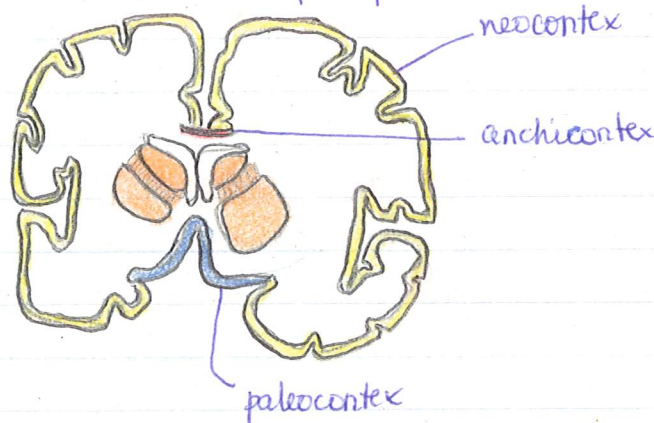 neocortex
archicortex
paleocortex